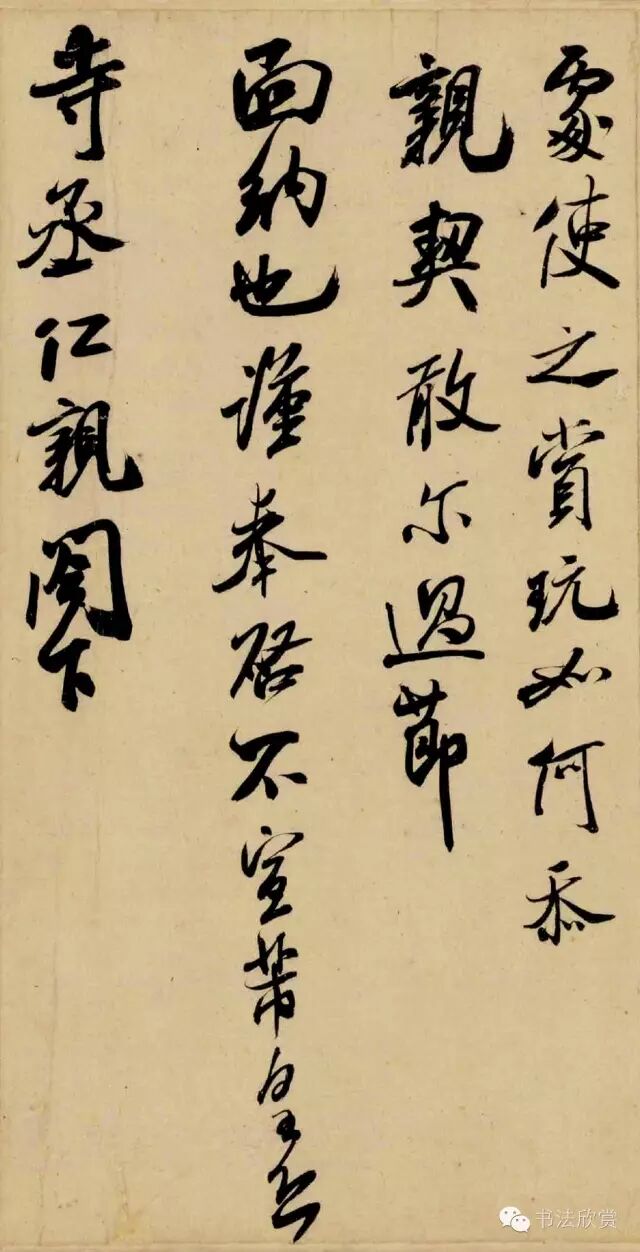 處使之賞玩如何忝
親契敢尔過節
面納也謹奉啓不宣芾皇恐
寺丞仁親閣下
书法欣赏